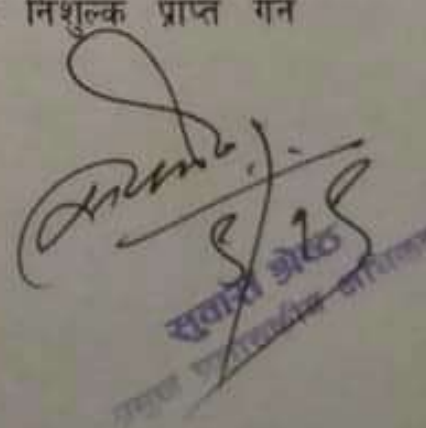 निशुल्क प्राप्त गर्न
५/१९
सुवास श्रेष्ठ
प्रमुख प्रशासकीय अधिकृत